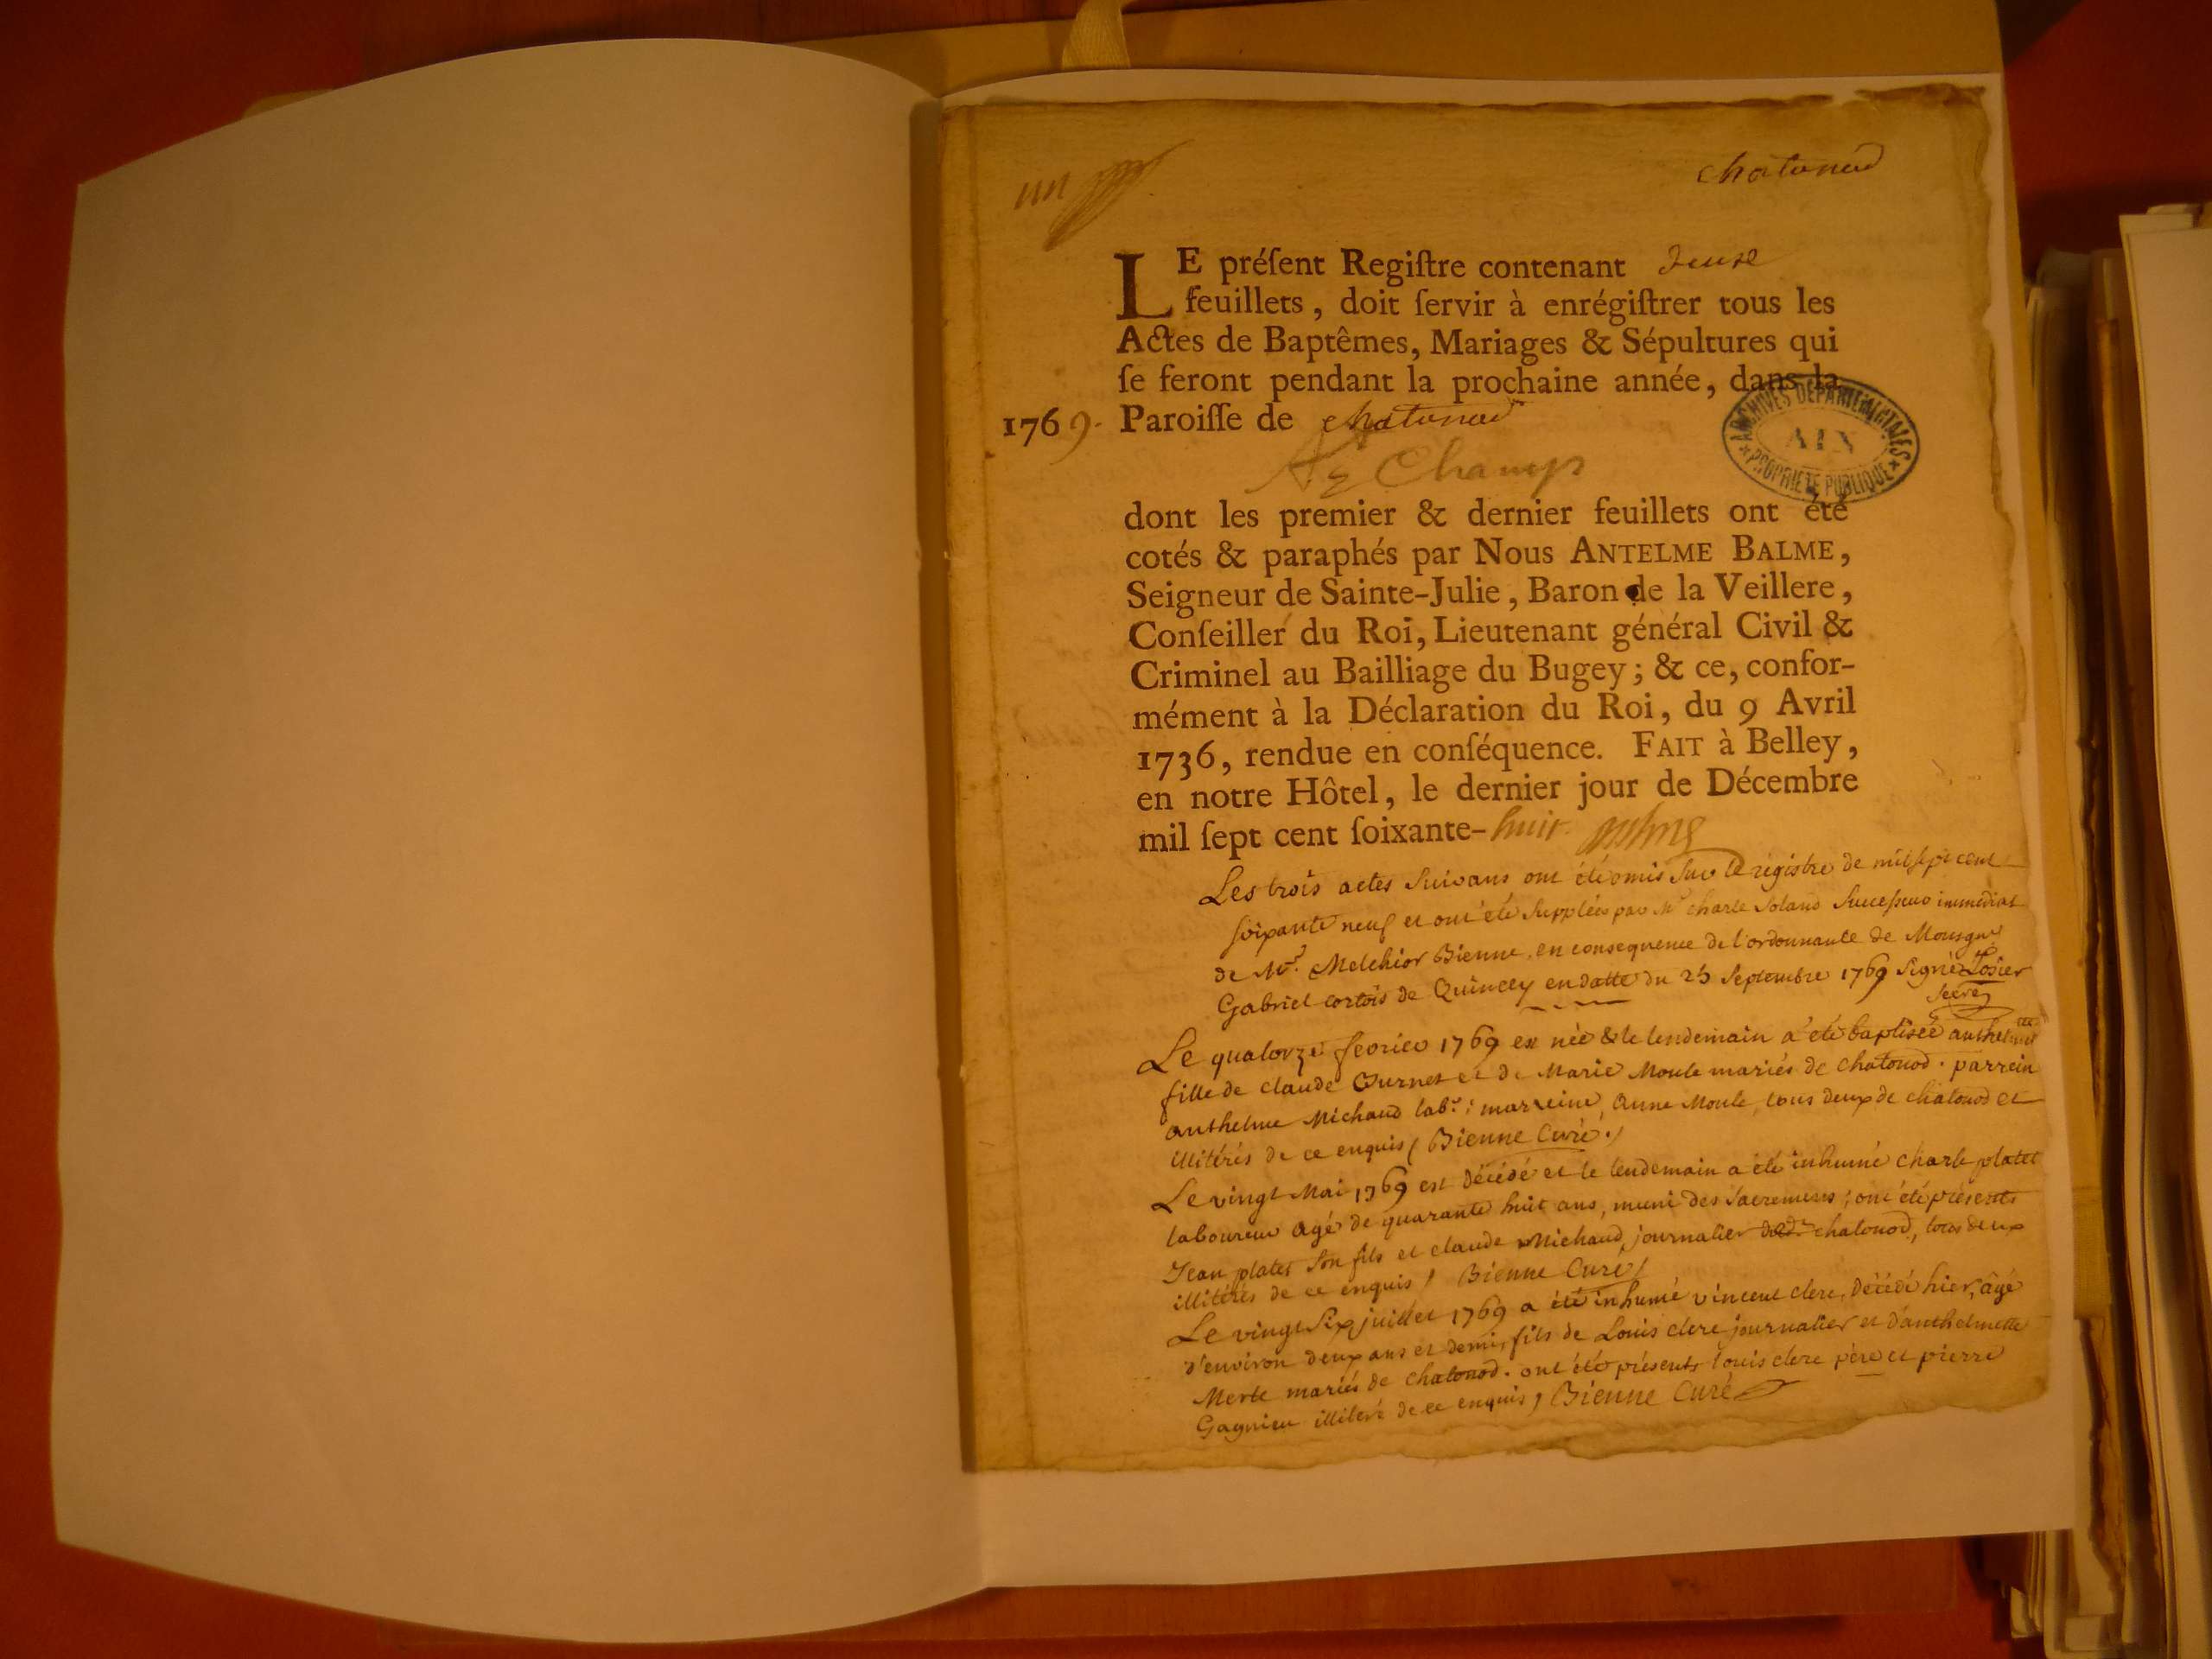 un
chatonod
LE préſent Regiſtre contenant deuxe
feuillets, doit ſervir à enrégiſtrer tous les
Actes de Baptêmes, Mariages & Sépultures qui
ſe feront pendant la prochaine année, dans la
1769. Paroiſſe de chatonod
ARCHIVES DÉPARTEMENTALES
AIN
PROPRIÉTÉ PUBLIQUE
Champs
dont les premier & dernier feuillets ont été
cotés & paraphés par Nous ANTELME BALME,
Seigneur de Sainte-Julie, Baron de la Veillere,
Conſeiller du Roi, Lieutenant général Civil &
Criminel au Bailliage du Bugey; & ce, confor-
mément à la Déclaration du Roi, du 9 Avril
1736, rendue en conſéquence. FAIT à Belley,
en notre Hôtel, le dernier jour de Décembre
mil ſept cent ſoixante-huit
Les trois actes suivans ont été omis sur le registre de mil sept cent
soixante neuf et ont été supplées par Mr charle Soland successeur immédiat
de Mr. Melchior Bienne, en consequence de l'ordonnance de Monsgnr
Gabriel cortois de Quincey en datte du 25 Septembre 1769 signé Losier
secre
Le quatorze fevrier 1769 est née & le lendemain a été baptisée anthelmette
fille de claude Burnet et de Marie Moule mariés de chatonod. parrein
anthelme Michaud labr: marreine, anne Moule, tous deux de chatonod et
illitérés de ce enquis / Bienne Curé./
Le vingt Mai 1769 est décédé et le lendemain a été inhumé charle platet
laboureur agé de quarante huit ans, muni des sacremens; ont été présents
Jean platet son fils et claude Michaud, journalier dud. chatonod, tous deux
illitérés de ce enquis / Bienne Curé /
Le vingt six juillet 1769 a été inhumé vincent clerc, décédé hier, âgé
d'environ deux ans et demi, fils de Louis clerc journalier et d'anthelmette
Merle mariés de chatonod. ont été présents louis clerc père et pierre
Gagnieu illiteré de ce enquis / Bienne Curé